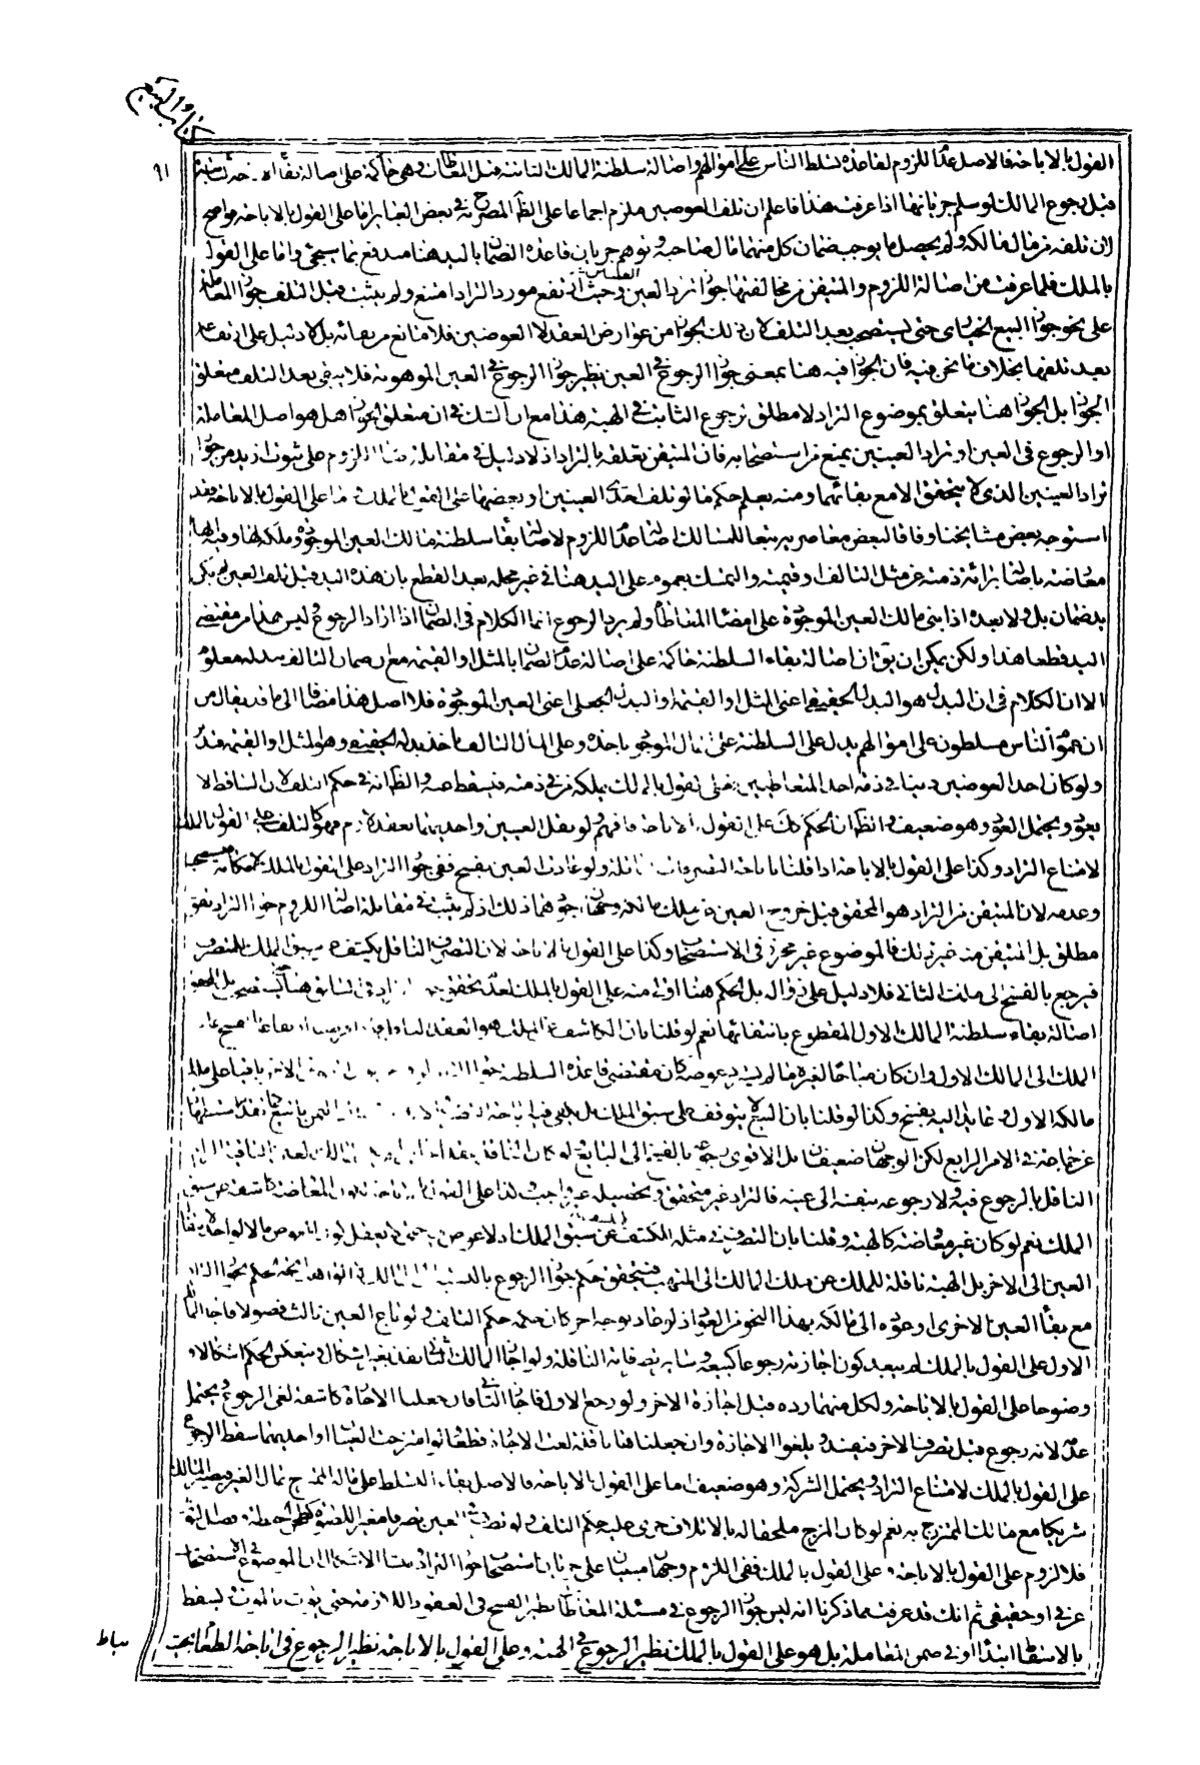 كتاب البيع
٩١
القول بالاباحة فالاصل عدم اللزوم لقاعدة تسلط الناس على اموالهم واصالة سلطنة المالك الثابتة قبل المعاطات وهى حاكمة على اصالة بقاء
قبل رجوع المالك لو سلم جريانها اذا عرفت هذا فاعلم ان تلف العوضين ملزم اجماعا على الظ المصرح به في بعض العبائر اما على القول بالاباحة فواضح
لان تلفه من مال مالكه ولم يحصل ما يوجب ضمان كل منهما مال صاحبه وتوهم جريان قاعدة الضمان باليد هنا مندفع بما سيجئ واما على القول
بالملك فلما عرفت من اصالة اللزوم والمتيقن من مخالفتها جواز تراد العينين وحيث ارتفع مورد التراد امتنع ولم يثبت قبل التلف جواز المعاملة
على نحو جواز البيع الخيارى حتى يستصحب بعد التلف لان ذلك الجواز من عوارض العقد لا العوضين فلا مانع من بقائه بل لا دليل على ارتفاعه
بعد تلفهما بخلاف ما نحن فيه فان الجواز فيه هنا بمعنى جواز الرجوع في العين نظير جواز الرجوع في العين الموهوبة فلا يبقى بعد التلف متعلق
الجواز بل الجواز هنا يتعلق بموضوع التراد لا مطلق الرجوع الثابت في الهبة هذا مع ان الشك في ان متعلق الجواز هل هو اصل المعاملة
او الرجوع في العين او تراد العينين يمنع من استصحابه فان المتيقن تعلقه بالتراد اذ لا دليل في مقابلة اللزوم على ثبوت ازيد من جواز
تراد العينين الذى لا يتحقق الا مع بقائهما ومنه يعلم حكم ما لو تلف احدى العينين او بعضها على القول بالملك واما على القول بالاباحة فقد
استوجه بعض مشايخنا وفاقا لبعض معاصريه تبعا للمسالك اصالة عدم اللزوم لاصالة بقاء سلطنة مالك العين الموجودة وملكه لها وفيه انها
معارضة باصالة برائة ذمته عن مثل التالف او قيمته والتمسك بعموم على اليد هنا في غير محله بعد القطع بان هذه اليد قبل تلف العين لم تكن
يد ضمان بل ولا بعده اذا بنى مالك العين الموجودة على امضاء المعاطاة ولم يرد الرجوع انما الكلام في الضمان اذا اراد الرجوع وليس هذا من مقتضى
اليد قطعا هذا ولكن يمكن ان يقال ان اصالة بقاء السلطنة حاكمة على اصالة عدم الضمان بالمثل او القيمة مع ان ضمان التالف ببدله معلوم
الا ان الكلام في ان البدل هو البدل الحقيقى اعنى المثل او القيمة او البدل الجعلى اعنى العين الموجودة فلا اصل هذا مضافا الى ما قد يقال من
ان عموم الناس مسلطون على اموالهم يدل على السلطنة على المال الموجود باخذه وعلى المال التالف باخذ بدله الحقيقى وهو المثل او القيمة فتدبر
ولو كان احد العوضين دينا في ذمة احد المتعاطيين فعلى القول بالملك يملكه من في ذمته فيسقط عنه والظ انه في حكم التلف لان الساقط لا
يعود ويحتمل العود وهو ضعيف والظ ان الحكم كذلك على القول بالاباحة فافهم ولو نقل العينين او احديهما بعقد لازم فهو كالتلف على القول بالملك
لامتناع التراد وكذا على القول بالاباحة اذا قلنا باباحة التصرفات الناقلة ولو عادت العين بفسخ ففى جواز التراد على القول بالملك لامكانه فيستصحب
وعدمه لان المتيقن من التراد هو المحقق قبل خروج العين عن ملك مالكه وجهان اجودهما ذلك اذ لم يثبت في مقابلة اصالة اللزوم جواز التراد بقول
مطلق بل المتيقن منه غير ذلك فالموضوع غير محرز في الاستصحاب وكذا على القول بالاباحة لان التصرف الناقل يكشف عن سبق الملك للمتصرف
فيرجع بالفسخ الى ملك الثانى فلا دليل على زواله بل الحكم هنا اولى منه على القول بالملك لعدم تحقق جواز التراد في السابق هنا حتى يستصحب بل المحقق
اصالة بقاء سلطنة المالك الاول المقطوع بانتفائها نعم لو قلنا بان الكاشف عن الملك هو العقد الناقل فاذا فرضنا ارتفاعه بالفسخ عاد
الملك الى المالك الاول وان كان مباحا لغيره ما لم يسترد عوضه كان مقتضى قاعدة السلطنة جواز التراد لو فرض كون العوض الاخر باقيا على ملك
مالكه الاول او عائدا اليه بفسخ وكذا لو قلنا بان البيع لا يتوقف على سبق الملك بل يكفى فيه اباحة التصرف
الناقل بالرجوع فيه ولا رجوع بنفسه الى عينه فالتراد غير متحقق
الملك نعم لو كان غير معاوضة كالهبة وقلنا بان التصرف في مثله لا يكشف عن سبق الملك اذ لا عوض
العين الى الاخر بل الهبة ناقلة للملك عن ملك المالك الى المتهب فيتحقق حكم جواز الرجوع بالنسبة الى المالك لا الواهب اتجه الحكم بجواز التراد
مع بقاء العين الاخرى او عوده الى مالكه بهذا النحو من العود اذ لو عاد بوجه اخر كان حكمه حكم التلف ولو باع العين ثالث فضولا فاجاز المالك
الاول على القول بالملك لم يبعد كون اجازته رجوعا كبيعه وسائر تصرفاته الناقلة ولو اجاز المالك الثانى نفذ بغير اشكال وينعكس الحكم اشكالا و
وضوحا على القول بالاباحة ولكل منهما رده قبل اجازة الاخر ولو رجع الاول فاجاز الثانى فان جعلنا الاجازة كاشفة لغى الرجوع ويحتمل
عدمه لانه رجوع قبل تصرف الاخر فينفذ ويلغوا الاجازة وان جعلناها ناقلة لغت الاجازة قطعا ولو امتزجت العينان او احديهما سقط الرجوع
على القول بالملك لامتناع التراد ويحتمل الشركة وهو ضعيف اما على القول بالاباحة فالاصل بقاء التسلط على ماله الممتزج بمال الغير فيصير المالك
شريكا مع مالك الممتزج به نعم لو كان المزج ملحقا له بالاتلاف جرى عليه حكم التلف ولو تصرف في العين تصرفا مغيرا للصورة كطحن الحنطة وفصل الثوب
فلا لزوم على القول بالاباحة وعلى القول بالملك ففى اللزوم وجهان مبنيان على جريان استصحاب جواز التراد ومنشأ الاشكال ان الموضوع في الاستصحاب
عرفى او حقيقى ثم انك قد عرفت مما ذكرنا انه ليس جواز الرجوع في مسئلة المعاطاة نظير الفسخ في العقود اللازمة حتى يورث بالموت ويسقط
بالاسقاط ابتداء او في ضمن المعاملة بل هو على القول بالملك نظير الرجوع في الهبة وعلى القول بالاباحة نظير الرجوع في اباحة الطعام بحيث
يناط